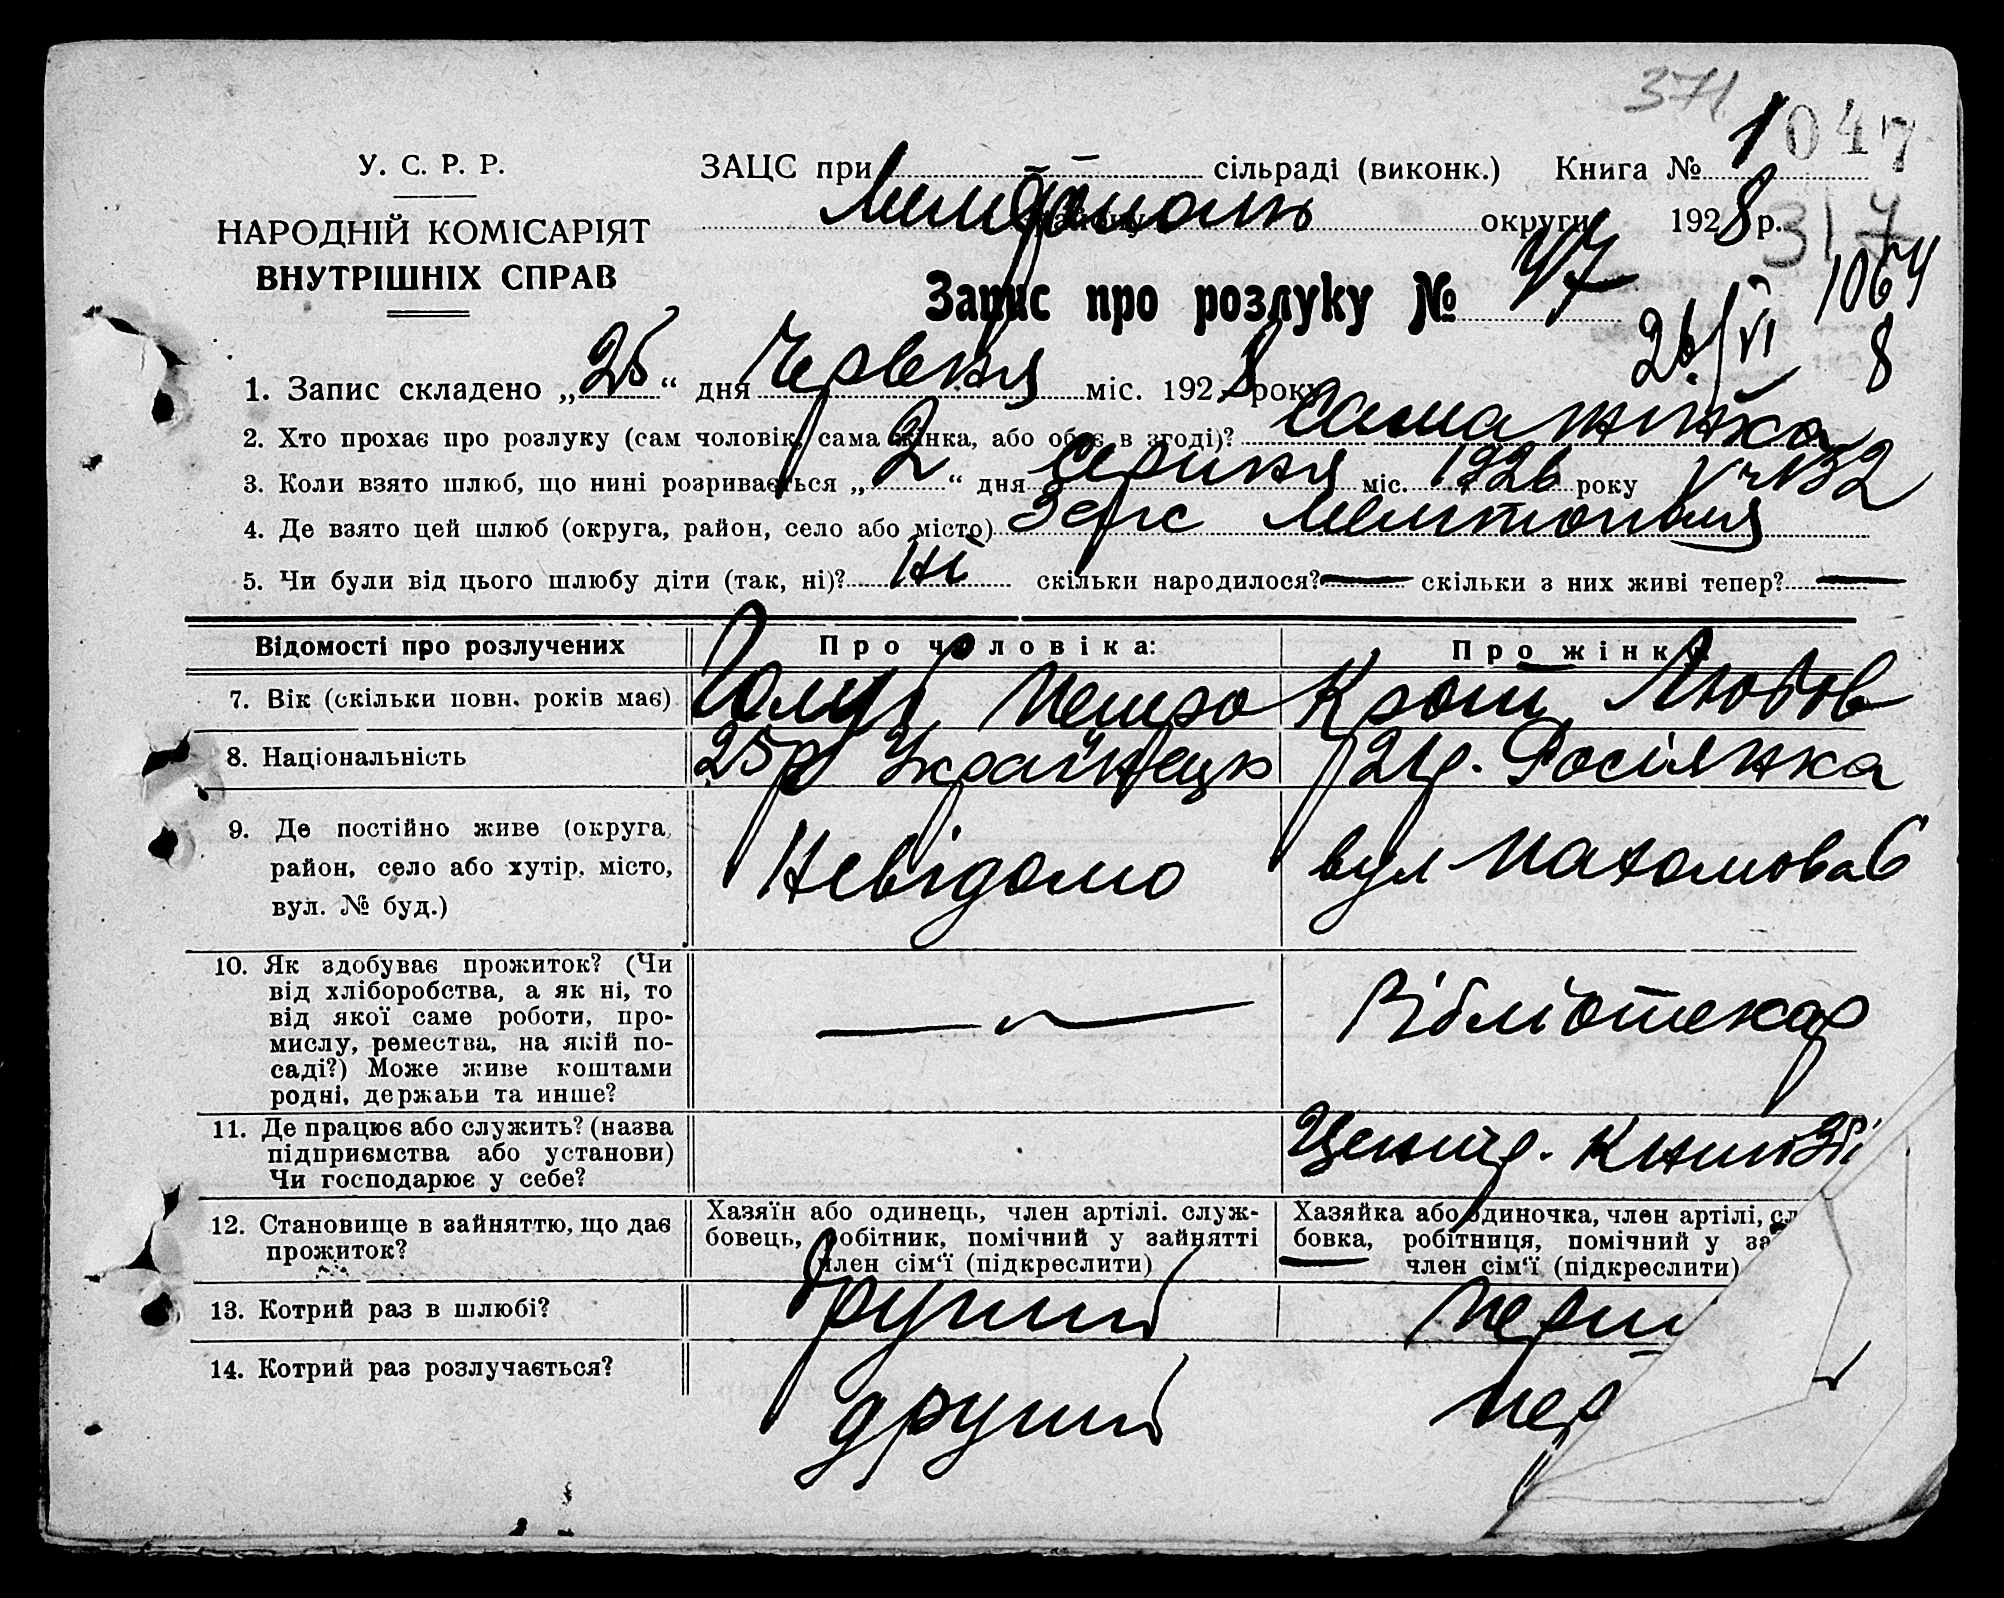 371
1047
У. С. Р. Р.
ЗАЦС при сільраді (виконк.) Книга №
Мелітополь округи 1928 р.
317
НАРОДНІЙ КОМІСАРІЯТ
ВНУТРІШНІХ СПРАВ
Запис про розлуку № 47
1064
26/VI 8
1. Запис складено „25“ дня Червня міс. 1928 року
2. Хто прохає про розлуку (сам чоловік, сама жінка, або обоє в згоді)? сама жінка
3. Коли взято шлюб, що нині розривається „2“ дня Серпня міс. 1926 року
4. Де взято цей шлюб (округа, район, село або місто) Загс Мелітополя
5. Чи були від цього шлюбу діти (так, ні)? Ні скільки народилося? — скільки з них живі тепер? —
Відомості про розлучених Про чоловіка: Про жінку
7. Вік (скільки повн. років має) Голуб Петро Крот Любов
8. Національність 25р Українець 21р. Росіянка
9. Де постійно живе (округа,
район, село або хутір, місто,
вул. № буд.)
Невідомо вул Пахомова 6
10. Як здобуває прожиток? (Чи
від хліборобства, а як ні, то
від якої саме роботи, про-
мислу, ремества, на якій по-
саді?) Може живе коштами
родні, держави та инше?
Бібліотекар
11. Де працює або служить? (назва
підприємства або установи)
Чи господарює у себе?
Центр.
12. Становище в зайняттю, що дає
прожиток?
Хазяїн або одинець, член артілі, служ-
бовець, робітник, помічний у зайнятті
член сім'ї (підкреслити)
Хазяйка або одиночка, член артілі, сл
бовка, робітниця, помічний у за
член сім'ї (підкреслити)
13. Котрий раз в шлюбі? другий перш
14. Котрий раз розлучається? другий пер